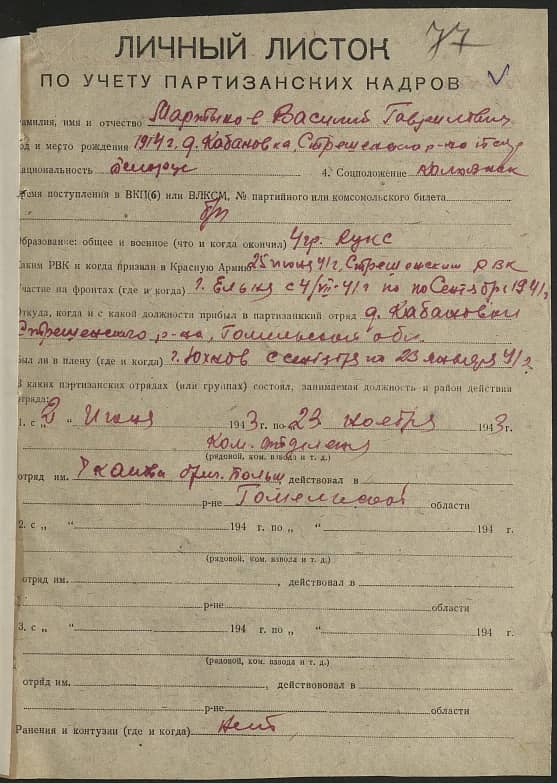 77
ЛИЧНЫЙ ЛИСТОК
ПО УЧЕТУ ПАРТИЗАНСКИХ КАДРОВ
амилия, имя и отчество Василий Гаврилович
од и место рождения 1914 г. д. Кабановка, Стрешенского р-на
ациональность белорус 4. Соцположение колхозник
ремя поступления в ВКП(б) или ВЛКСМ, № партийного или комсомольского билета
б/п
Образование: общее и военное (что и когда окончил) 4 гр.
аким РВК и когда призван в Красную Армию 25 июня 41 г. Стрешенским РВК
частие на фронтах (где и когда) г. Ельня с 4/VII-41 г по Сентябрь 1941 г
Откуда, когда и с какой должности прибыл в партизанский отряд д. Кабановки
Стрешенского р-на, Гомельской обл.
ыл ли в плену (где и когда) г. Юхнов с сентября по 23 января 41 г.
В каких партизанских отрядах (или группах) состоял, занимаемая должность и район действия
отряда:
1. с „ 2 “ Июня 1943 г. по „ 23 “ ноября 1943 г.
Ком. отделения
(рядовой, ком. взвода и т. д.)
отряд им. действовал в
р-не Гомельской области
2. с „ “ 194 г. по „ “ 194 г.
(рядовой, ком. взвода и т. д.)
отряд им. , действовал в
р-не области
3. с „ “ 194 г. по „ “ 194 г.
(рядовой, ком. взвода и т. д.)
отряд им. , действовал в
р-не области
Ранения и контузии (где и когда) нет